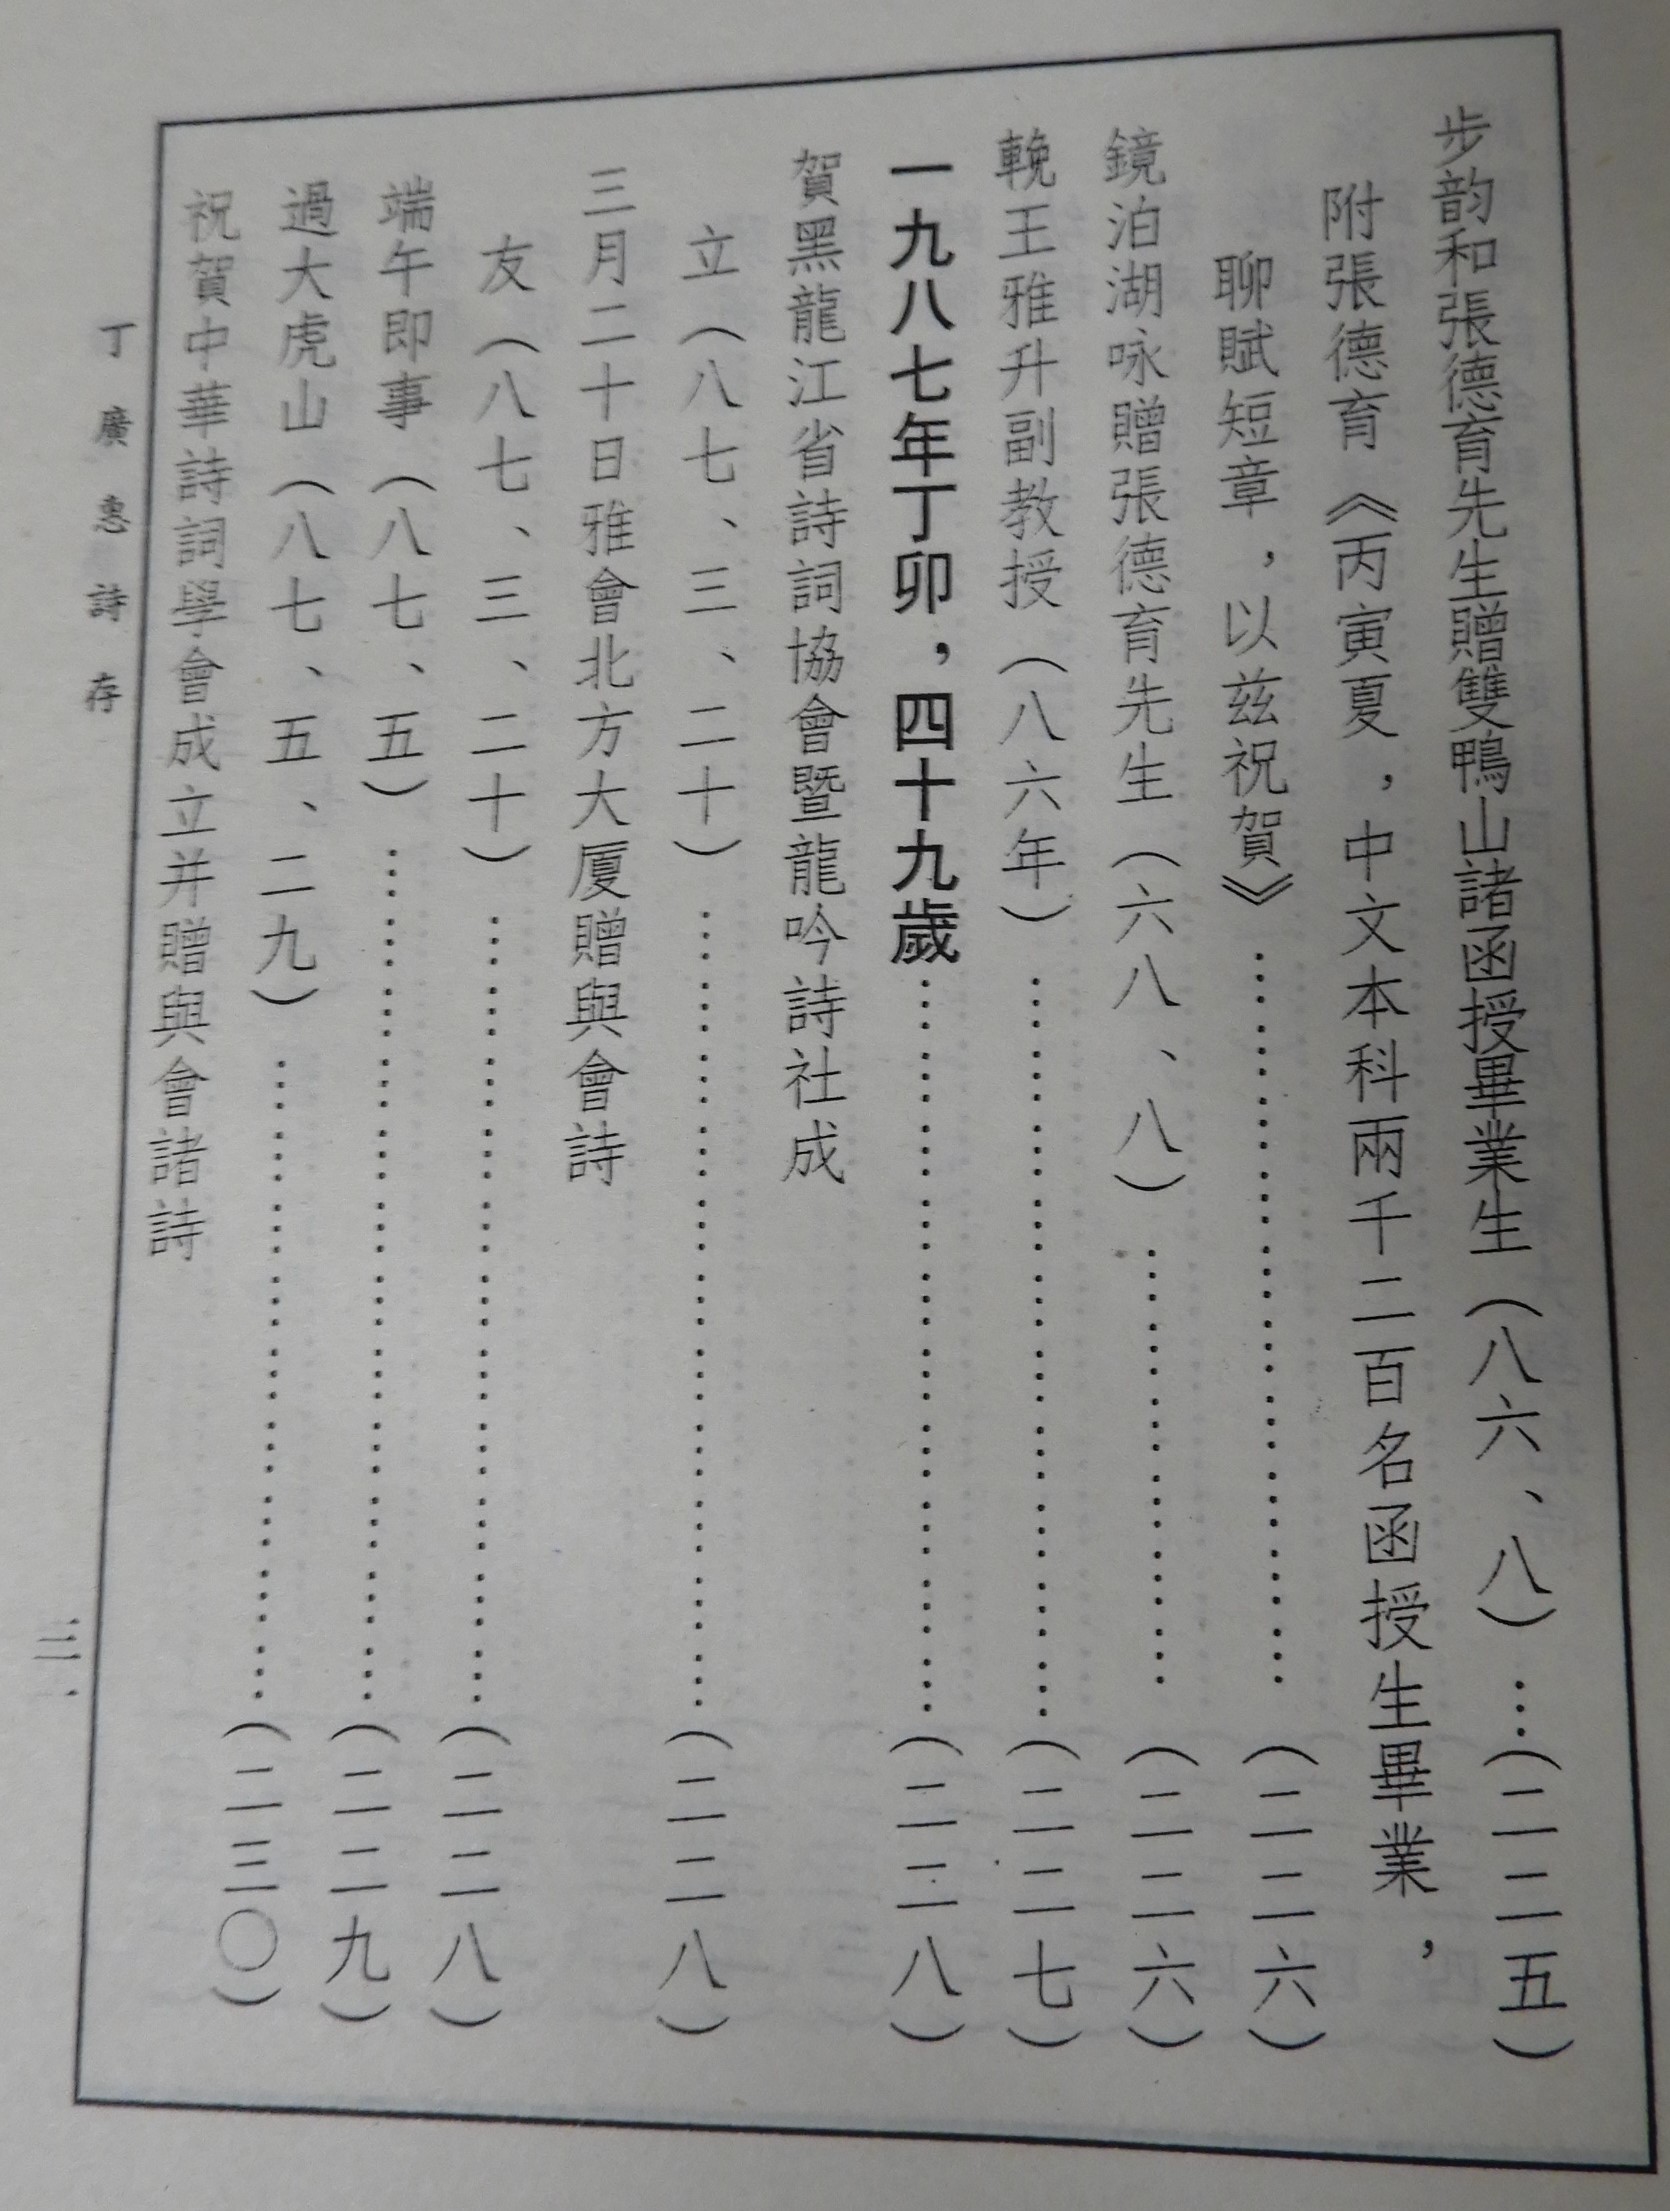 步韵和張德育先生贈雙鴨山諸函授畢業生（八六、八）…（二二五）
附張德育《丙寅夏，中文本科兩千二百名函授生畢業，
聊賦短章，以兹祝賀》……………………（二二六）
鏡泊湖咏贈張德育先生（六八、八）……………（二二六）
輓王雅升副教授（八六年）……………………（二二七）
一九八七年丁卯，四十九歲……………………（二二八）
賀黑龍江省詩詞協會暨龍吟詩社成
立（八七、三、二十）………………………（二二八）
三月二十日雅會北方大厦贈與會詩
友（八七、三、二十）………………………（二二八）
端午即事（八七、五）…………………………（二二九）
過大虎山（八七、五、二九）…………………（二三〇）
祝賀中華詩詞學會成立并贈與會諸詩
丁廣惠詩存